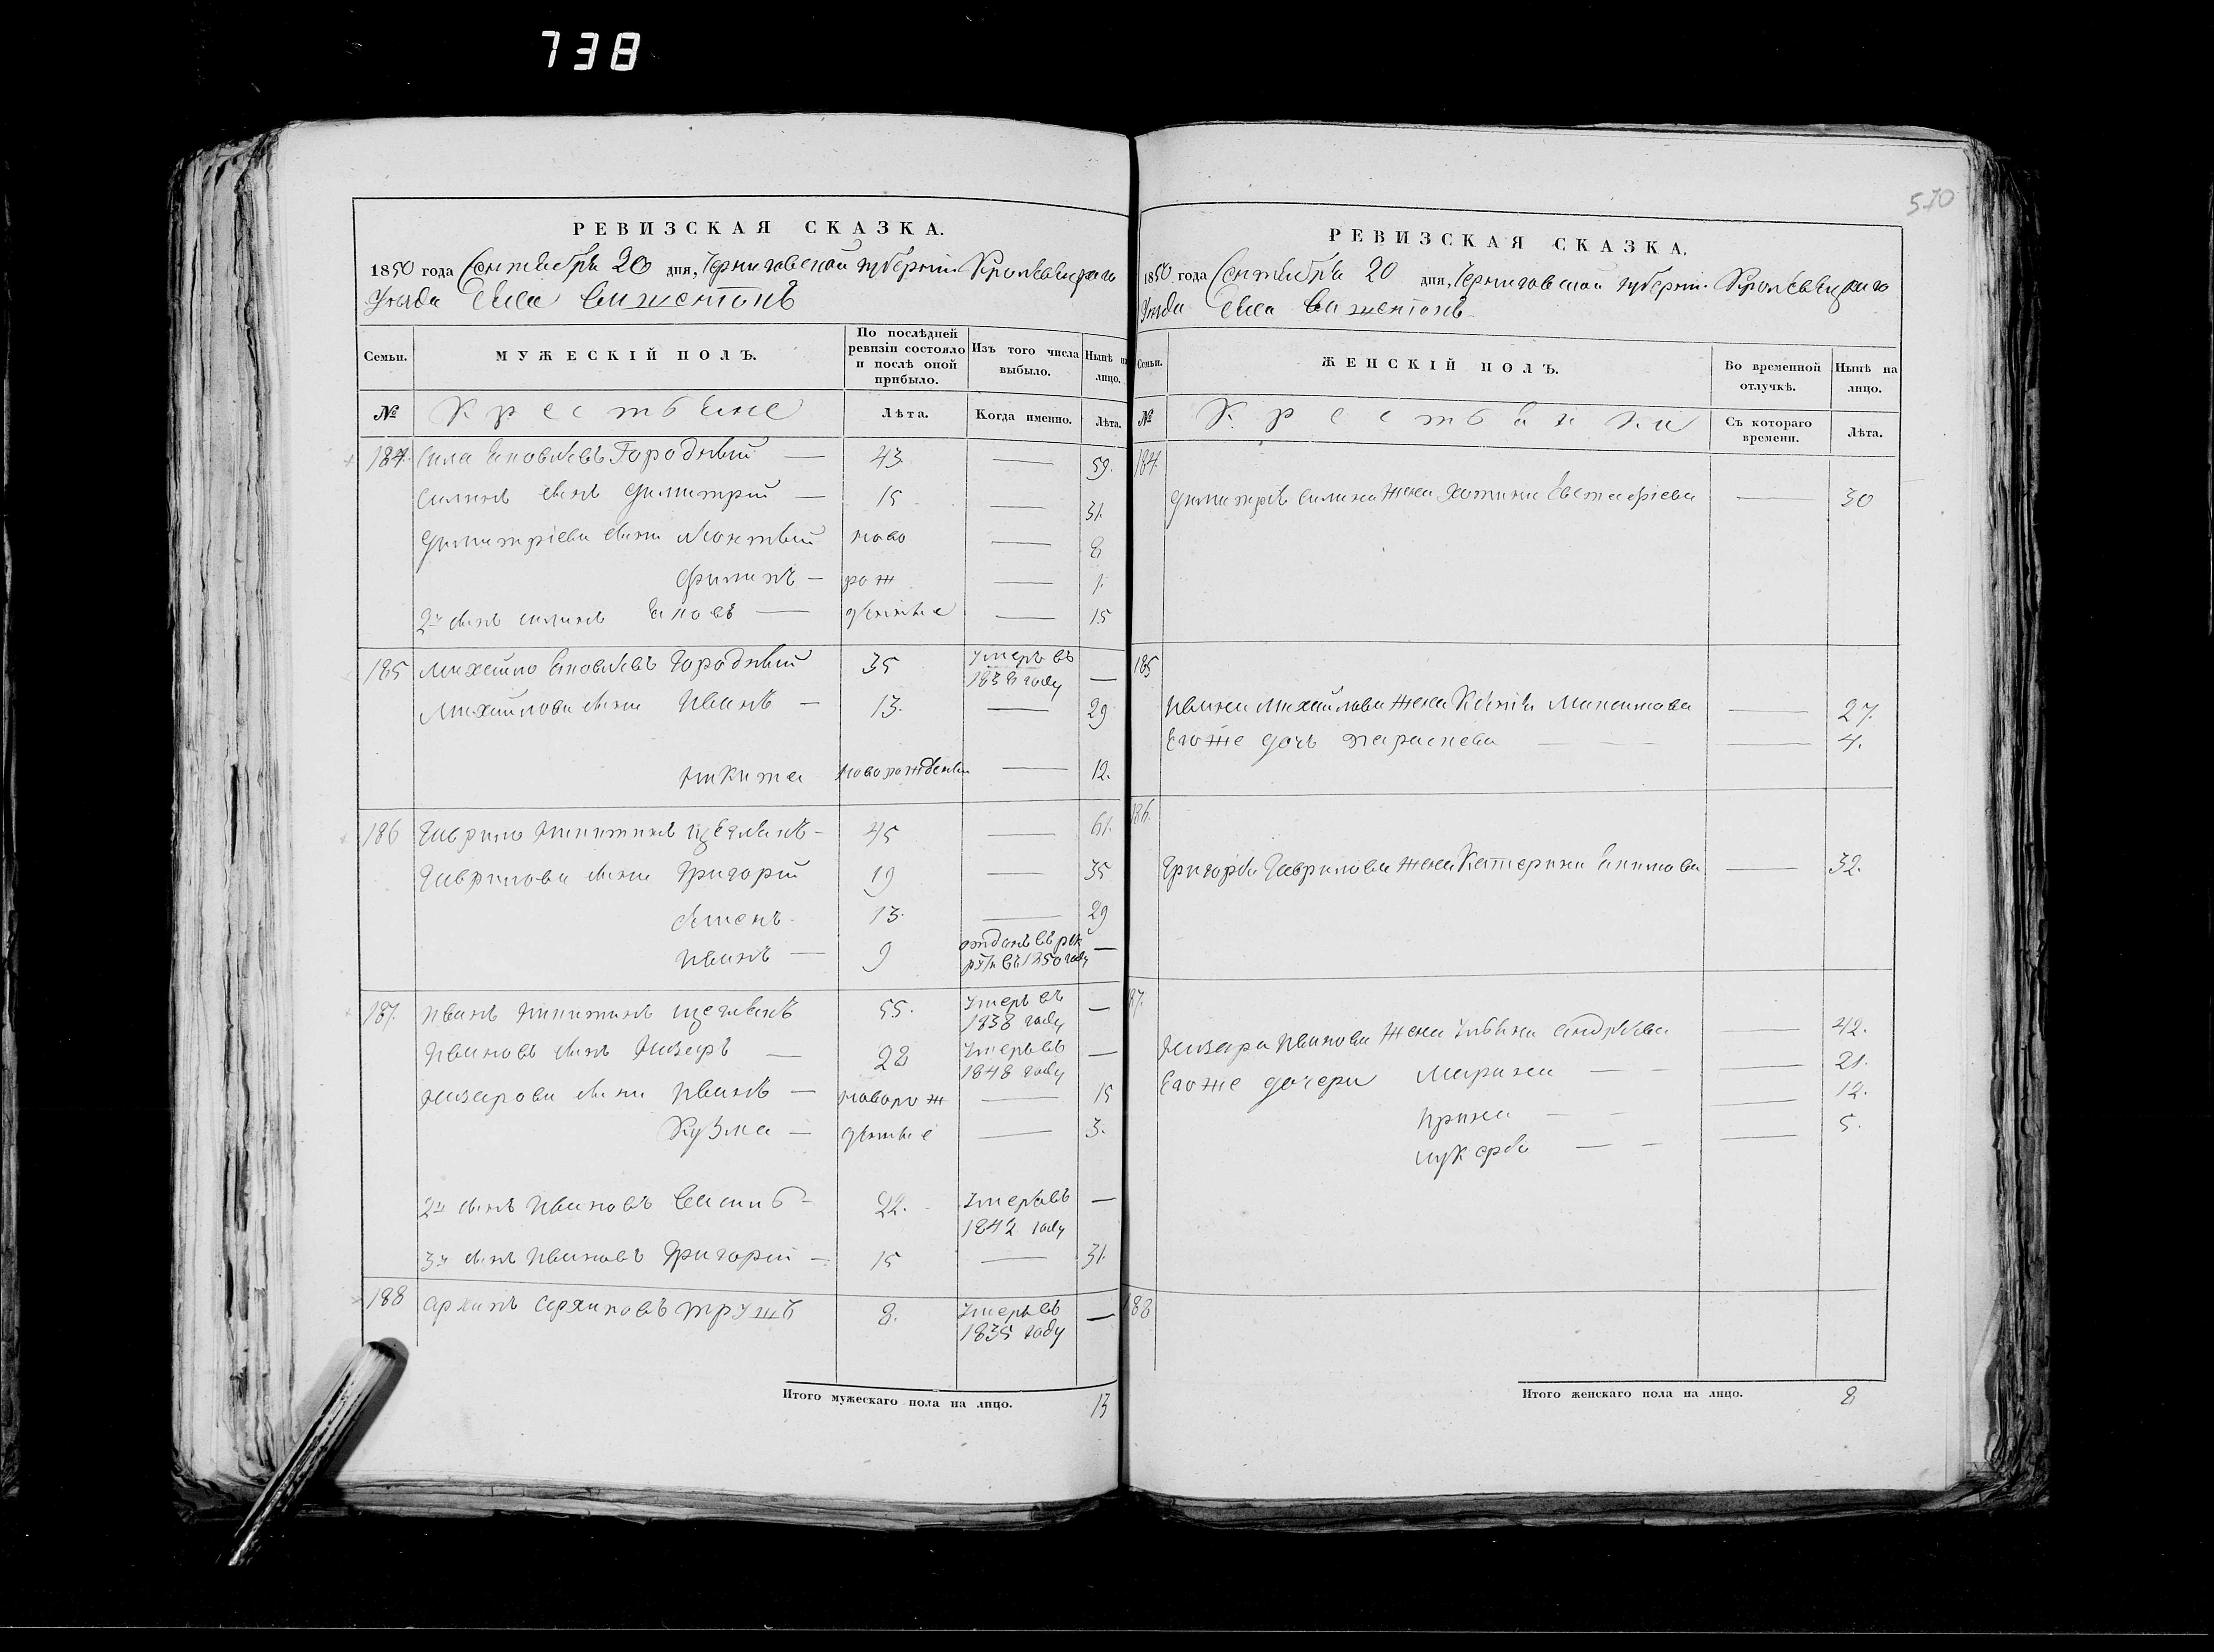 738
570
РЕВИЗСКАЯ СКАЗКА.
1850 года Сентября 20 дня, Черниговской губерніи Кролевецкаго
Уезда Села
Семьи.
МУЖЕСКІЙ ПОЛЪ.
По послѣдней ревизіи состояло и послѣ оной прибыло.
Изъ того числа выбыло.
Нынѣ на лицо.
№
Крестьяне
Лѣта.
Когда именно.
Лѣта.
184. Сила Яковлевъ Городній — 43 — 59.
Силинъ сынъ Димитрій — 15 — 31.
Димитріевы сыны Леонтвій ново — 8
Филипъ — рож — 1.
2й сынъ Силинъ Яковъ —денные — 15
185 Михайло Яковлевъ Городній 35 Умеръ въ 1838 году —
Михайловы сыны Иванъ — 13. — 29
Никита новорожденны — 12.
186 Гаврило Никитинъ — 45 — 61.
Гавриловы сыны Григорій 19 — 35
Семенъ 13. — 29
Иванъ — 9 отданъ въ рекруты въ 1850 году —
187. Иванъ Никитинъ 55. Умеръ въ 1838 году —
Ивановъ сынъ Назаръ — 28 Умеръ въ 1848 году —
Назаровы сыны Иванъ — новорож — 15
Кузма — денные — 3.
2й сынъ Ивановъ Василь — 22. Умеръ въ 1842 году —
3й сынъ Ивановъ Григорій — 15 — 31.
188 Архипъ Архиповъ 8. Умеръ въ 1835 году —
Итого мужескаго пола на лицо. 13
РЕВИЗСКАЯ СКАЗКА.
1850 года Сентября 20 дня, Черниговской губерніи Кролевецкаго
Уезда Села
Семьи.
ЖЕНСКІЙ ПОЛЪ.
Во временной отлучкѣ.
Нынѣ на лицо.
№
Крестьянки
Съ котораго времени.
Лѣта.
184.
Димитрія Силина жена Хотина Евстафіева — 30
185
Ивана Михайлова жена Ксенія Максимова — 27.
Его же дочь Параскева — 4.
186.
Григорія Гаврилова жена Катерина Якимова — 32.
187.
Назара Иванова жена Ульяна Андреева — 42.
Его же дочери Марина — 21.
Ирина — 12.
— 5.
188
Итого женскаго пола на лицо. 8